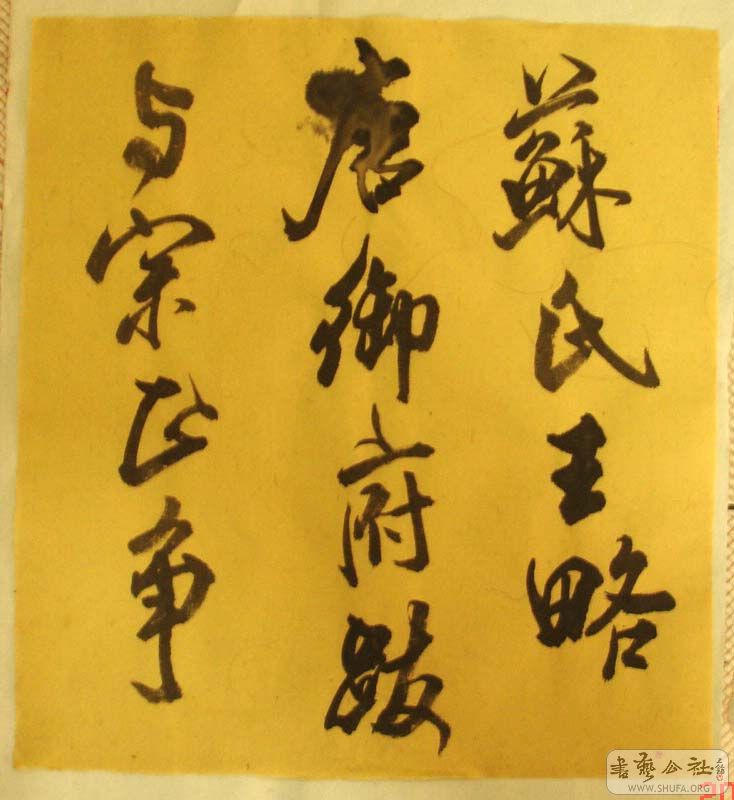 蘇氏王略
唐御府跋
与宗正争
書藝公社
WWW.SHUFA.ORG
20